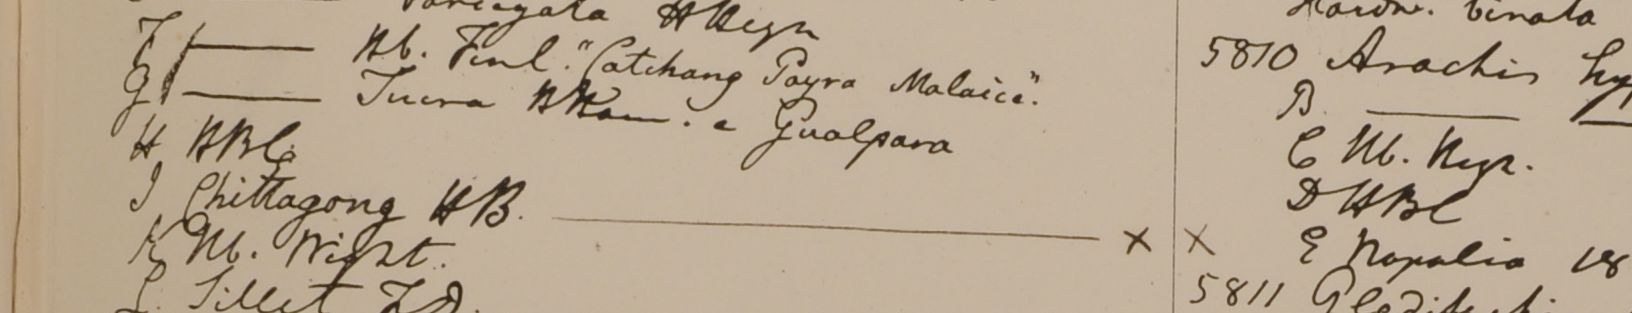 variegata HHeyn
F —— Hb. Finl. "Catchang Payra Malaice".
G —— Tuera HHam. e Gualpara
H HBC
I Chittagong HB. —— ×
K Hb. Wight.
L. Sillet FD.
Hardw. binata
5810 Arachis hyp
B —— —
C Hb. Heyn.
D HBC
× E Napalia 18
5811 Gleditschi